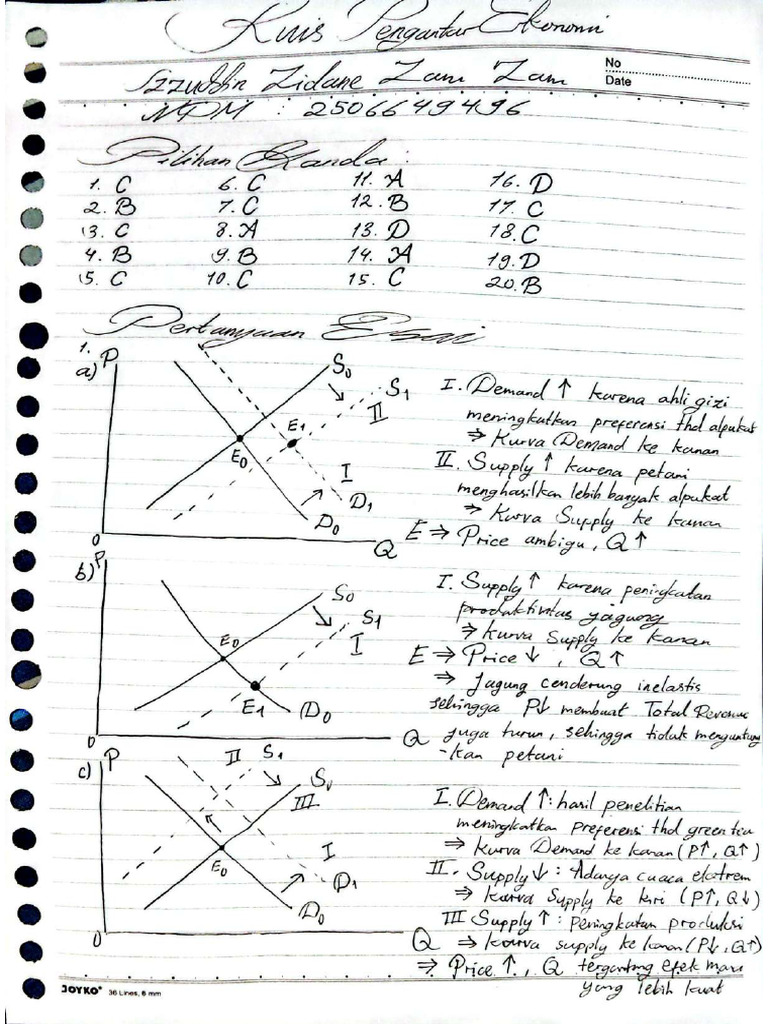 Kuis Pengantar Ekonomi
No
Date
Izzuddin Zidane Zam Zam
NPM : 2506649496
Pilihan Ganda :
1. C 6. C 11. A 16. D
2. B 7. C 12. B 17. C
3. C 8. A 13. D 18. C
4. B 9. B 14. A 19. D
5. C 10. C 15. C 20. B
Pertanyaan Esai
1.
a) P S0 S1 II E1 E0 I D1 D0 0 Q
I. Demand ↑ karena ahli gizi
meningkatkan preferensi thd alpukat
⇒ Kurva Demand ke kanan
II. Supply ↑ karena petani
menghasilkan lebih banyak alpukat
⇒ Kurva Supply ke kanan
E ⇒ Price ambigu, Q ↑
b) P S0 S1 I E0 E1 D0 0 Q
I. Supply ↑ karena peningkatan
produktivitas jagung
⇒ Kurva Supply ke kanan
E ⇒ Price ↓ , Q ↑
⇒ Jagung cenderung inelastis
sehingga P↓ membuat Total Revenue
juga turun, sehingga tidak menguntung
-kan petani
c) P II S1 S0 III E0 I D1 D0 0 Q
I. Demand ↑ : hasil penelitian
meningkatkan preferensi thd green tea
⇒ Kurva Demand ke kanan (P↑, Q↑)
II. Supply ↓ : Adanya cuaca ekstrem
⇒ Kurva Supply ke kiri (P↑, Q↓)
III Supply ↑ : Peningkatan produksi
⇒ Kurva supply ke kanan (P↓, Q↑)
⇒ Price ↑, Q tergantung efek mana
yang lebih kuat
JOYKO® 36 Lines, 6 mm